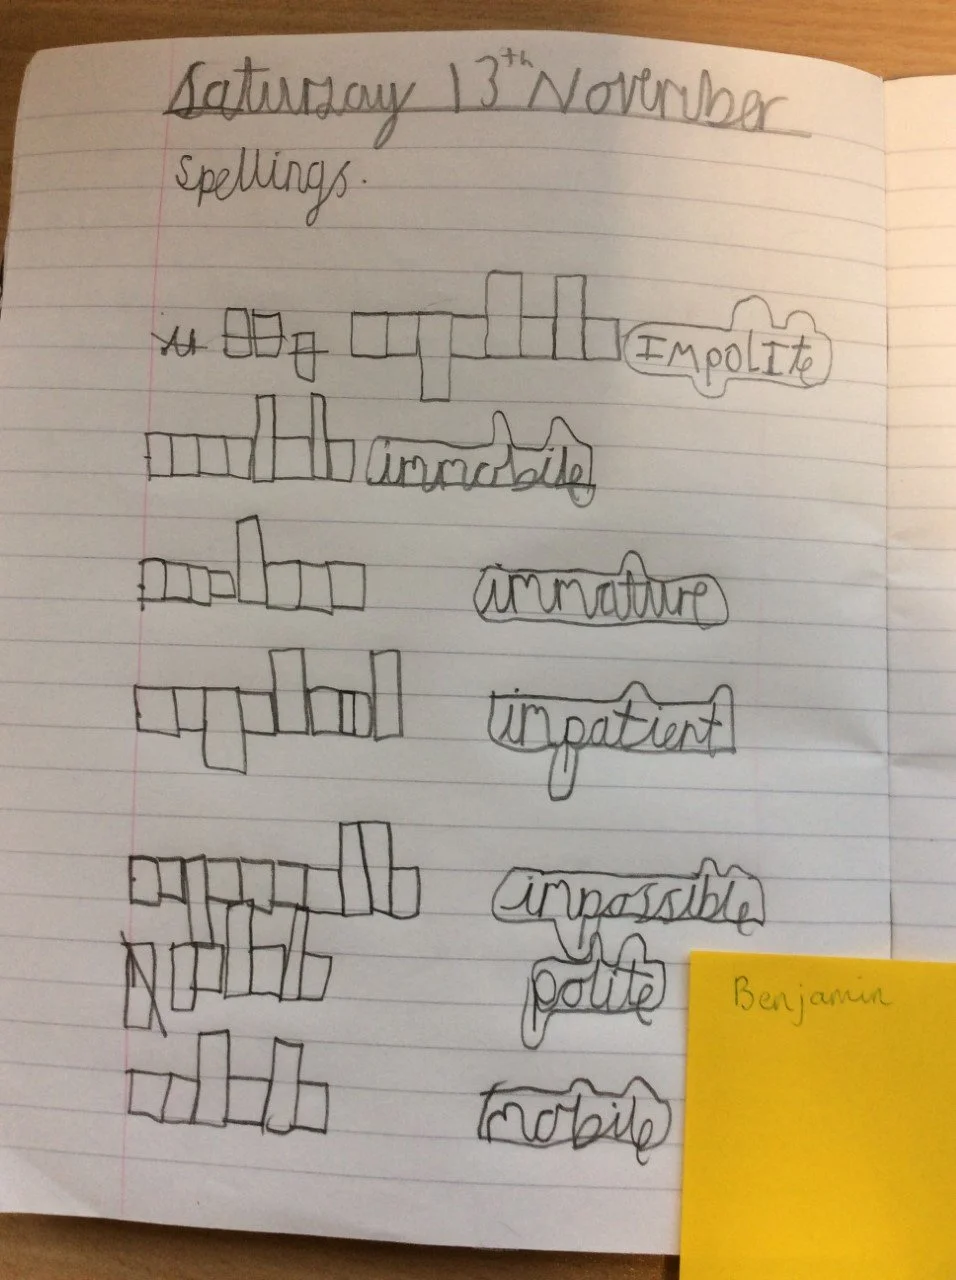 Saturday 13th November
Spellings.
ImpolIte
immobile
immature
impatient
impossible
polite
Benjamin
mobile